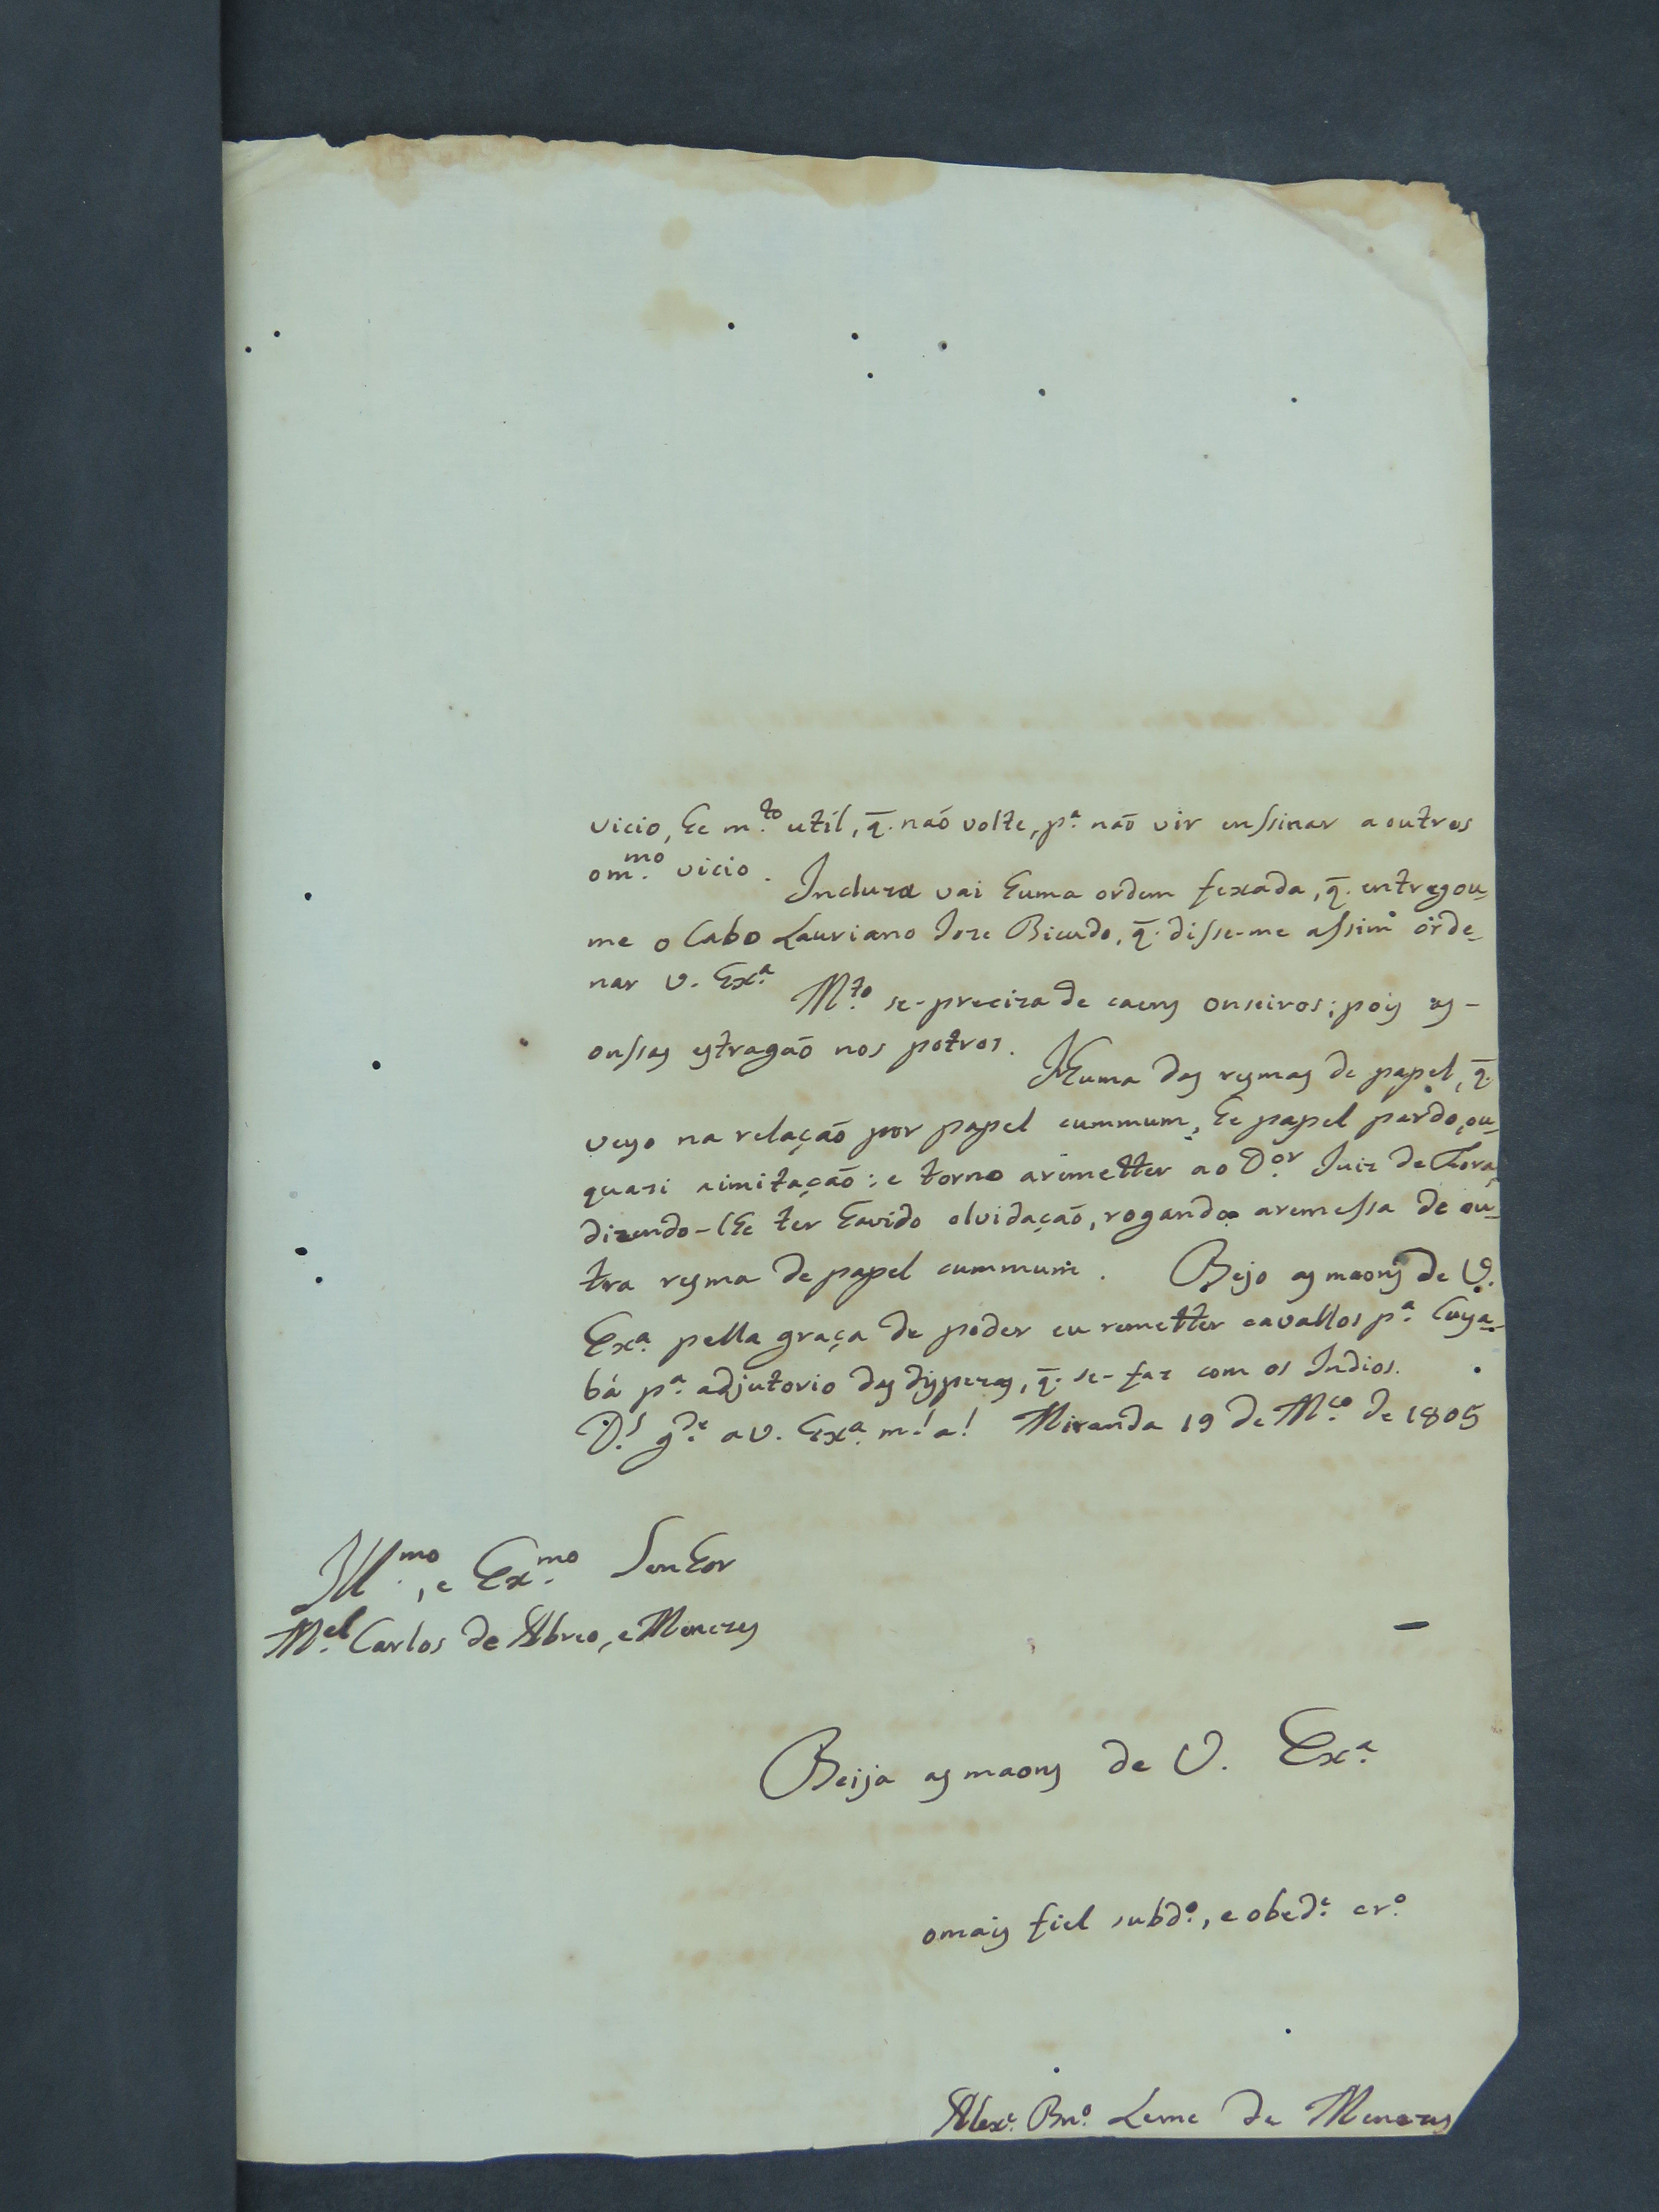 vicio, he m.to util, q̃. naõ volte, p.a naõ vir enssinar a outros
o m.mo vicio. Incluza vai huma ordem fexada, q̃. entregou-
me o Cabo Lauriano Joze Bicudo, q̃. disse-me assim orde-
nar V. Ex.a M.to se-preciza de caens onseiros; pois as-
onssas estragaõ nos potros. Huma das resmas de papel, q̃.
veyo na relaçaõ por papel cummum, he papel pardo, ou-
quazi aimitaçaõ: e torno aremetter ao D.or Juiz de Fora,
dizendo-lhe ter havido olvidaçaõ, rogando aremessa de ou-
tra resma de papel cummum. Bejo as maons de V.
Ex.a pella graça de poder eu remetter cavallos p.a Cuya-
bá p.a adjutorio das dispezas, q̃. se-faz com os Indios.
D.s g.de a V. Ex.a m.s a.s Miranda 19 de M.ço de 1805
Ill.mo, e Ex.mo Senhor
M.el Carlos de Abreo, e Menezes
Beija as maons de V. Ex.a
omais fiel subd.o, e obed.e cr.o
Alex.e Bn.o Leme de Menezes